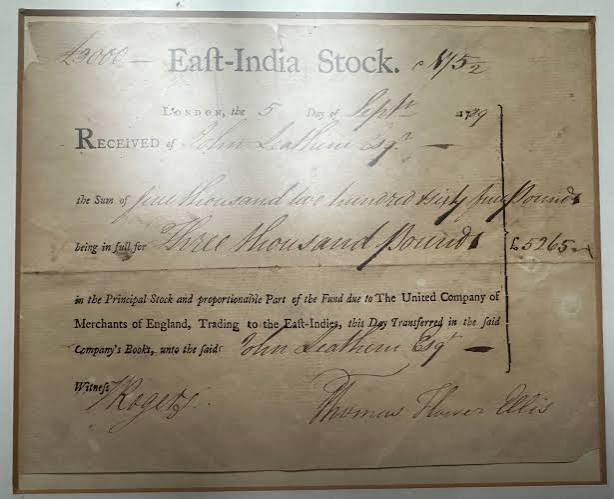 £3000 — Eaſt-India Stock. N 175½
London, the 5 Day of Septr 1789
Received of John Leathem Esqr —
the Sum of five thousand two hundred sixty five Pounds
being in full for Three thousand pounds £5265 —
in the Principal Stock and proportionable Part of the Fund due to The United Company of
Merchants of England, Trading to the Eaſt-Indies, this Day Transferred in the ſaid
Company's Books, unto the ſaid John Leathem Esqr —
Witneſs
Thomas Flower Ellis